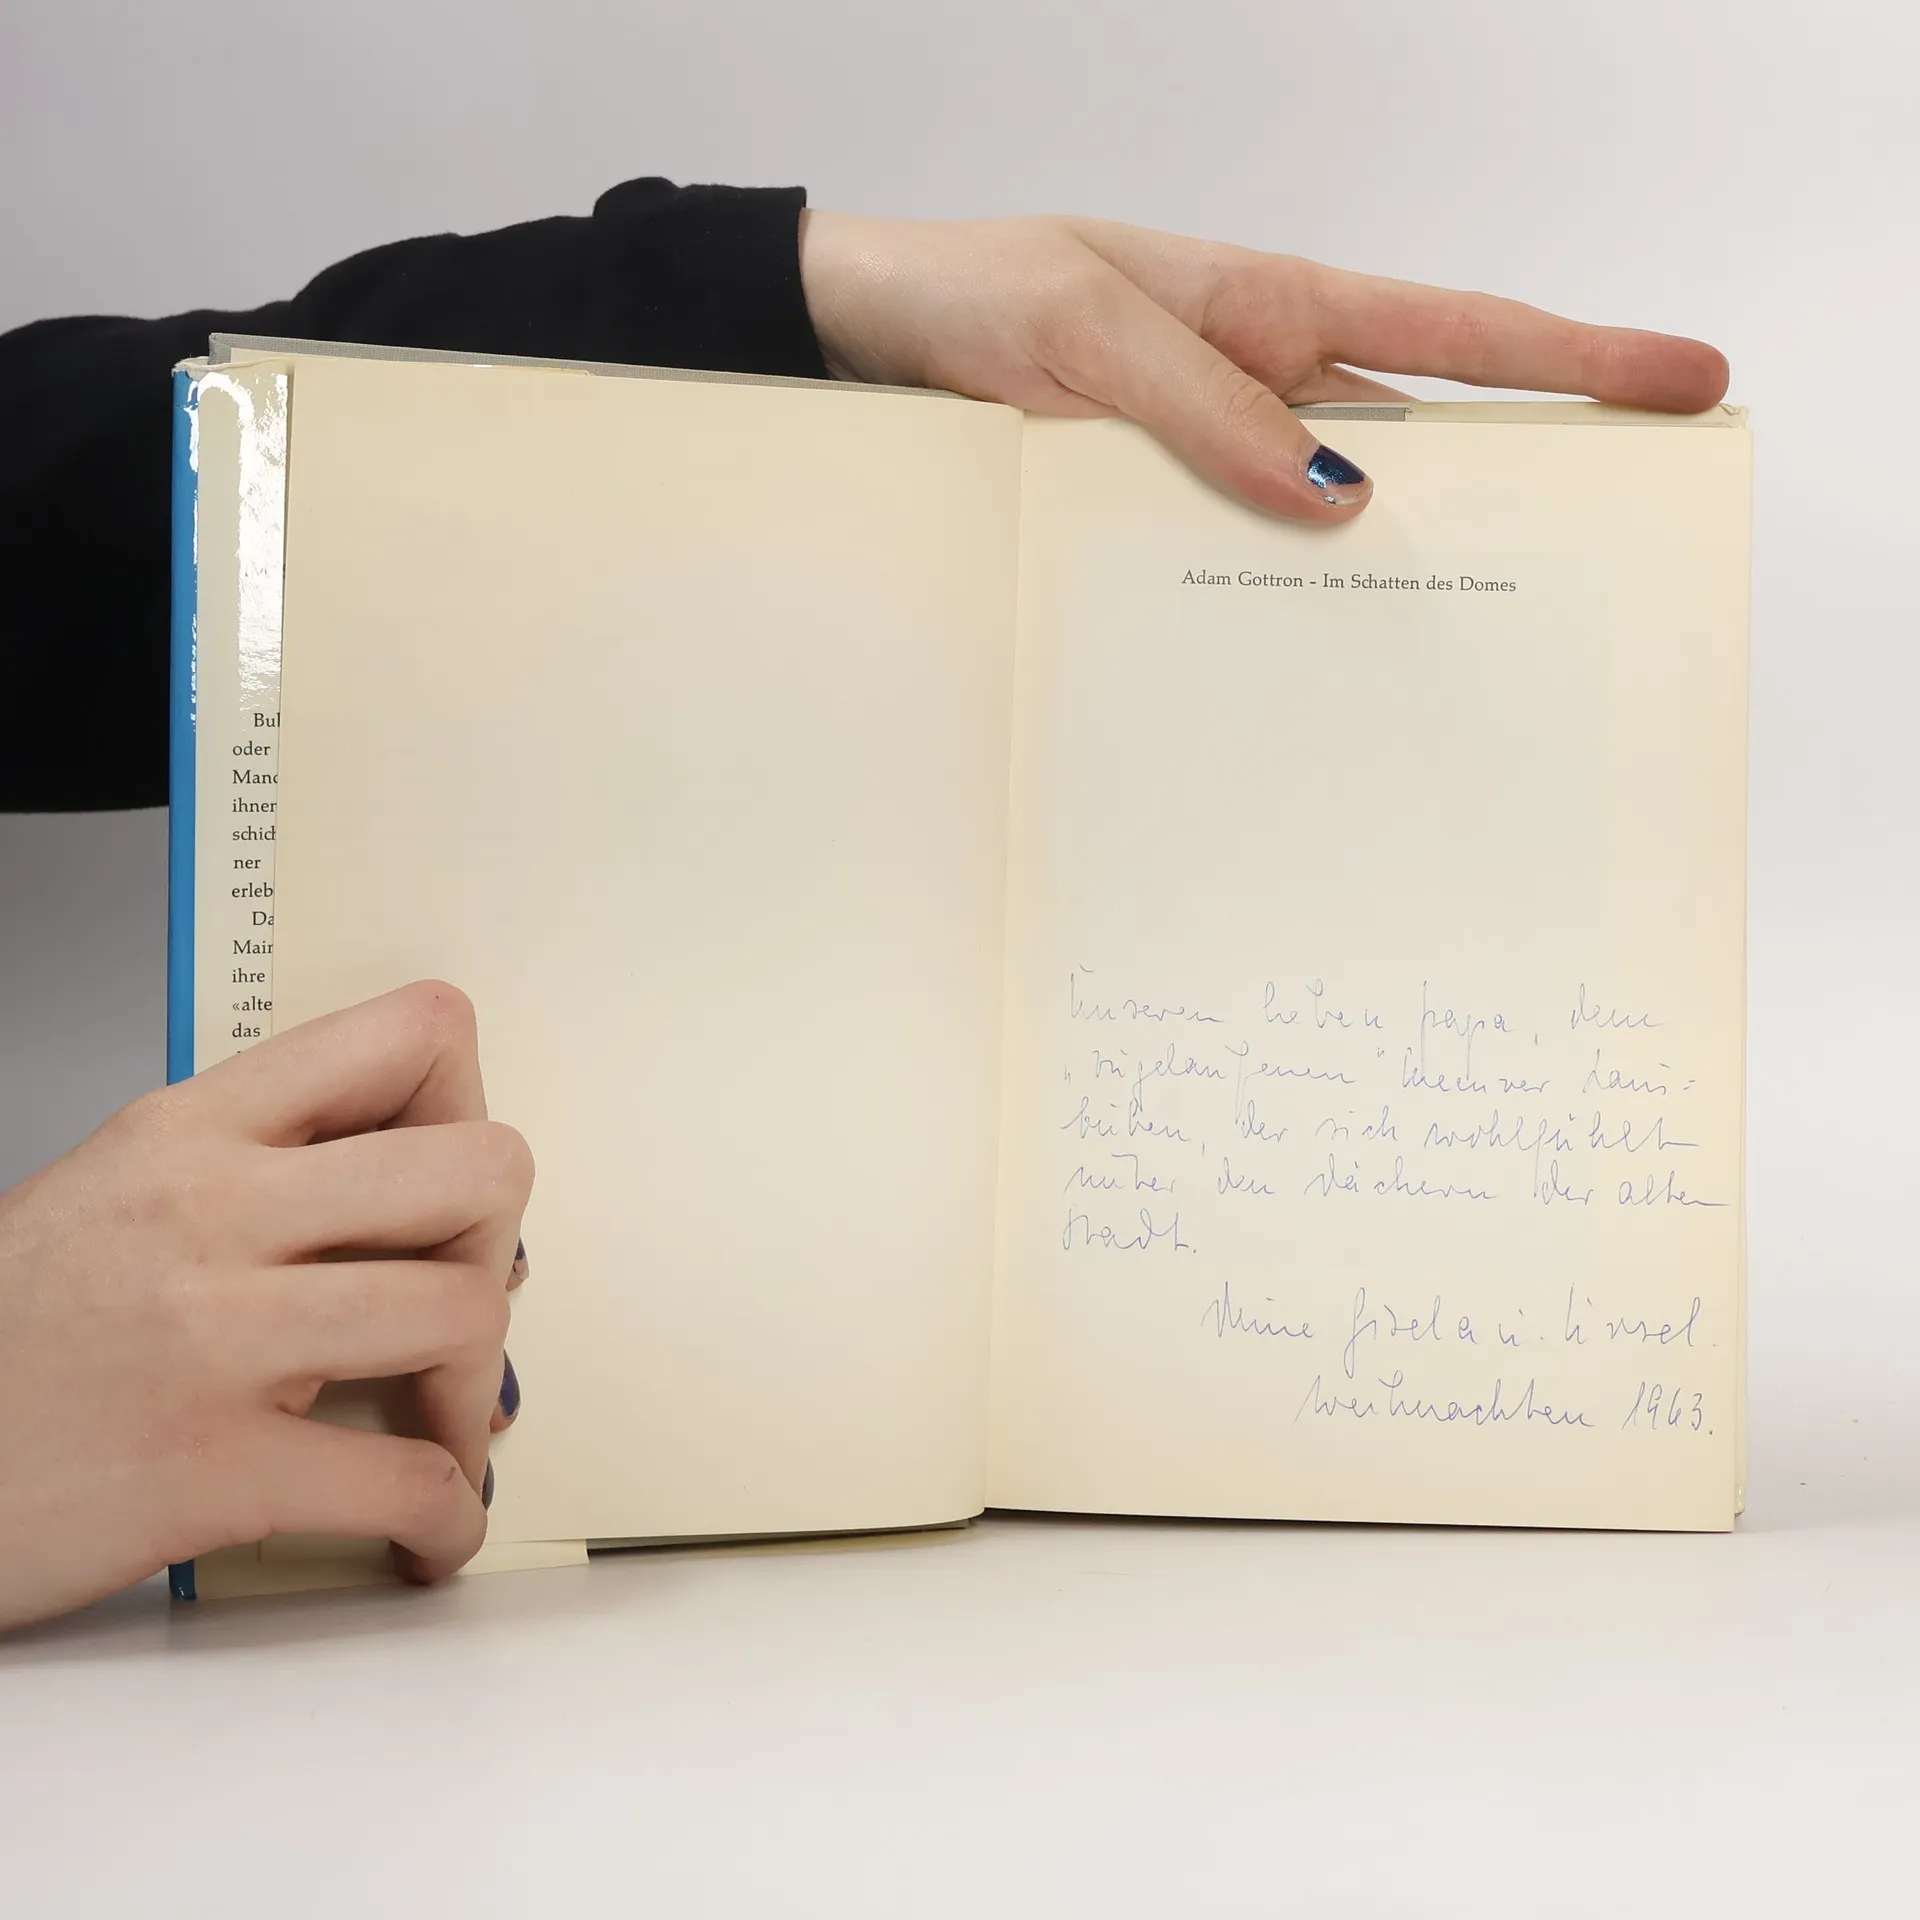 Bu
oder
Man
ihner
schich
ner
erleb
Da
Mai
ihre
«alte
das
Adam Gottron - Im Schatten des Domes
Unseren lieben Papa, dem
„zugelaufenen" Meenzer Laus=
buben, der sich wohlfühlt
unter den Dächern der alten
Stadt.
Deine Gisela u. Ursel.
Weihnachten 1963.